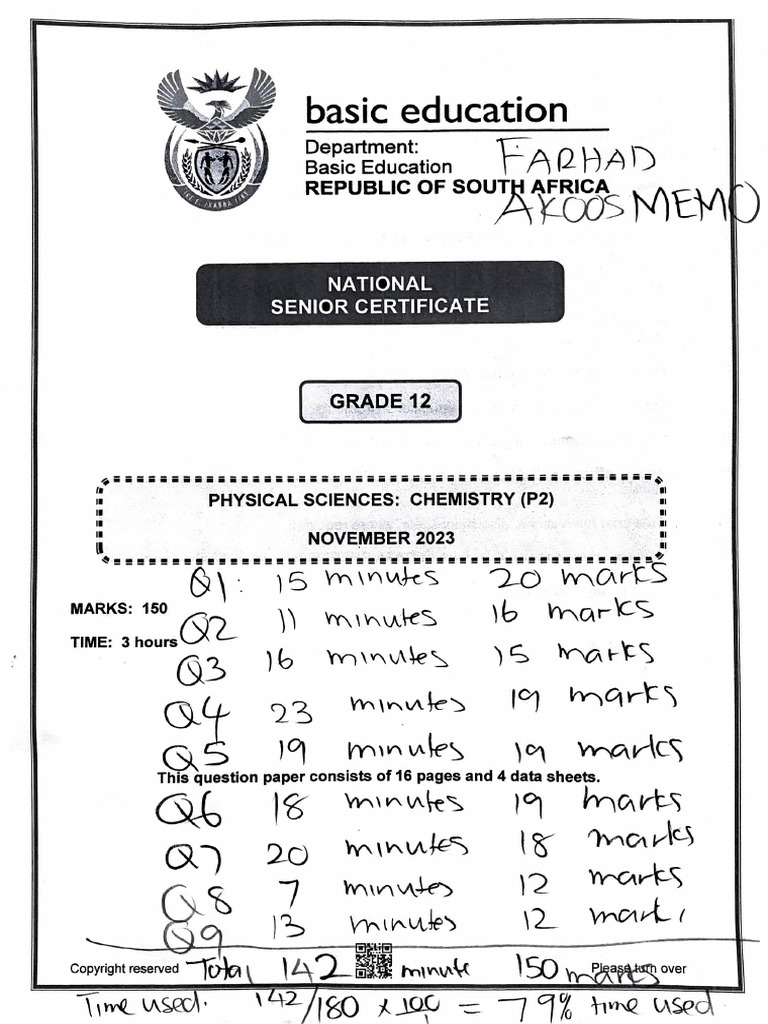 basic education
Department:
Basic Education
REPUBLIC OF SOUTH AFRICA
FARHAD
AKOOS MEMO
NATIONAL
SENIOR CERTIFICATE
GRADE 12
PHYSICAL SCIENCES: CHEMISTRY (P2)
NOVEMBER 2023
Q1: 15 minutes 20 marks
MARKS: 150
Q2 11 minutes 16 marks
TIME: 3 hours
Q3 16 minutes 15 marks
Q4 23 minutes 19 marks
Q5 19 minutes 19 marks
This question paper consists of 16 pages and 4 data sheets.
Q6 18 minutes 19 marks
Q7 20 minutes 18 marks
Q8 7 minutes 12 marks
Q9 13 minutes 12 mark
Copyright reserved Please turn over
Total 142 minute 150 marks
Time used. 142/180 × 100/1 = 79% time used